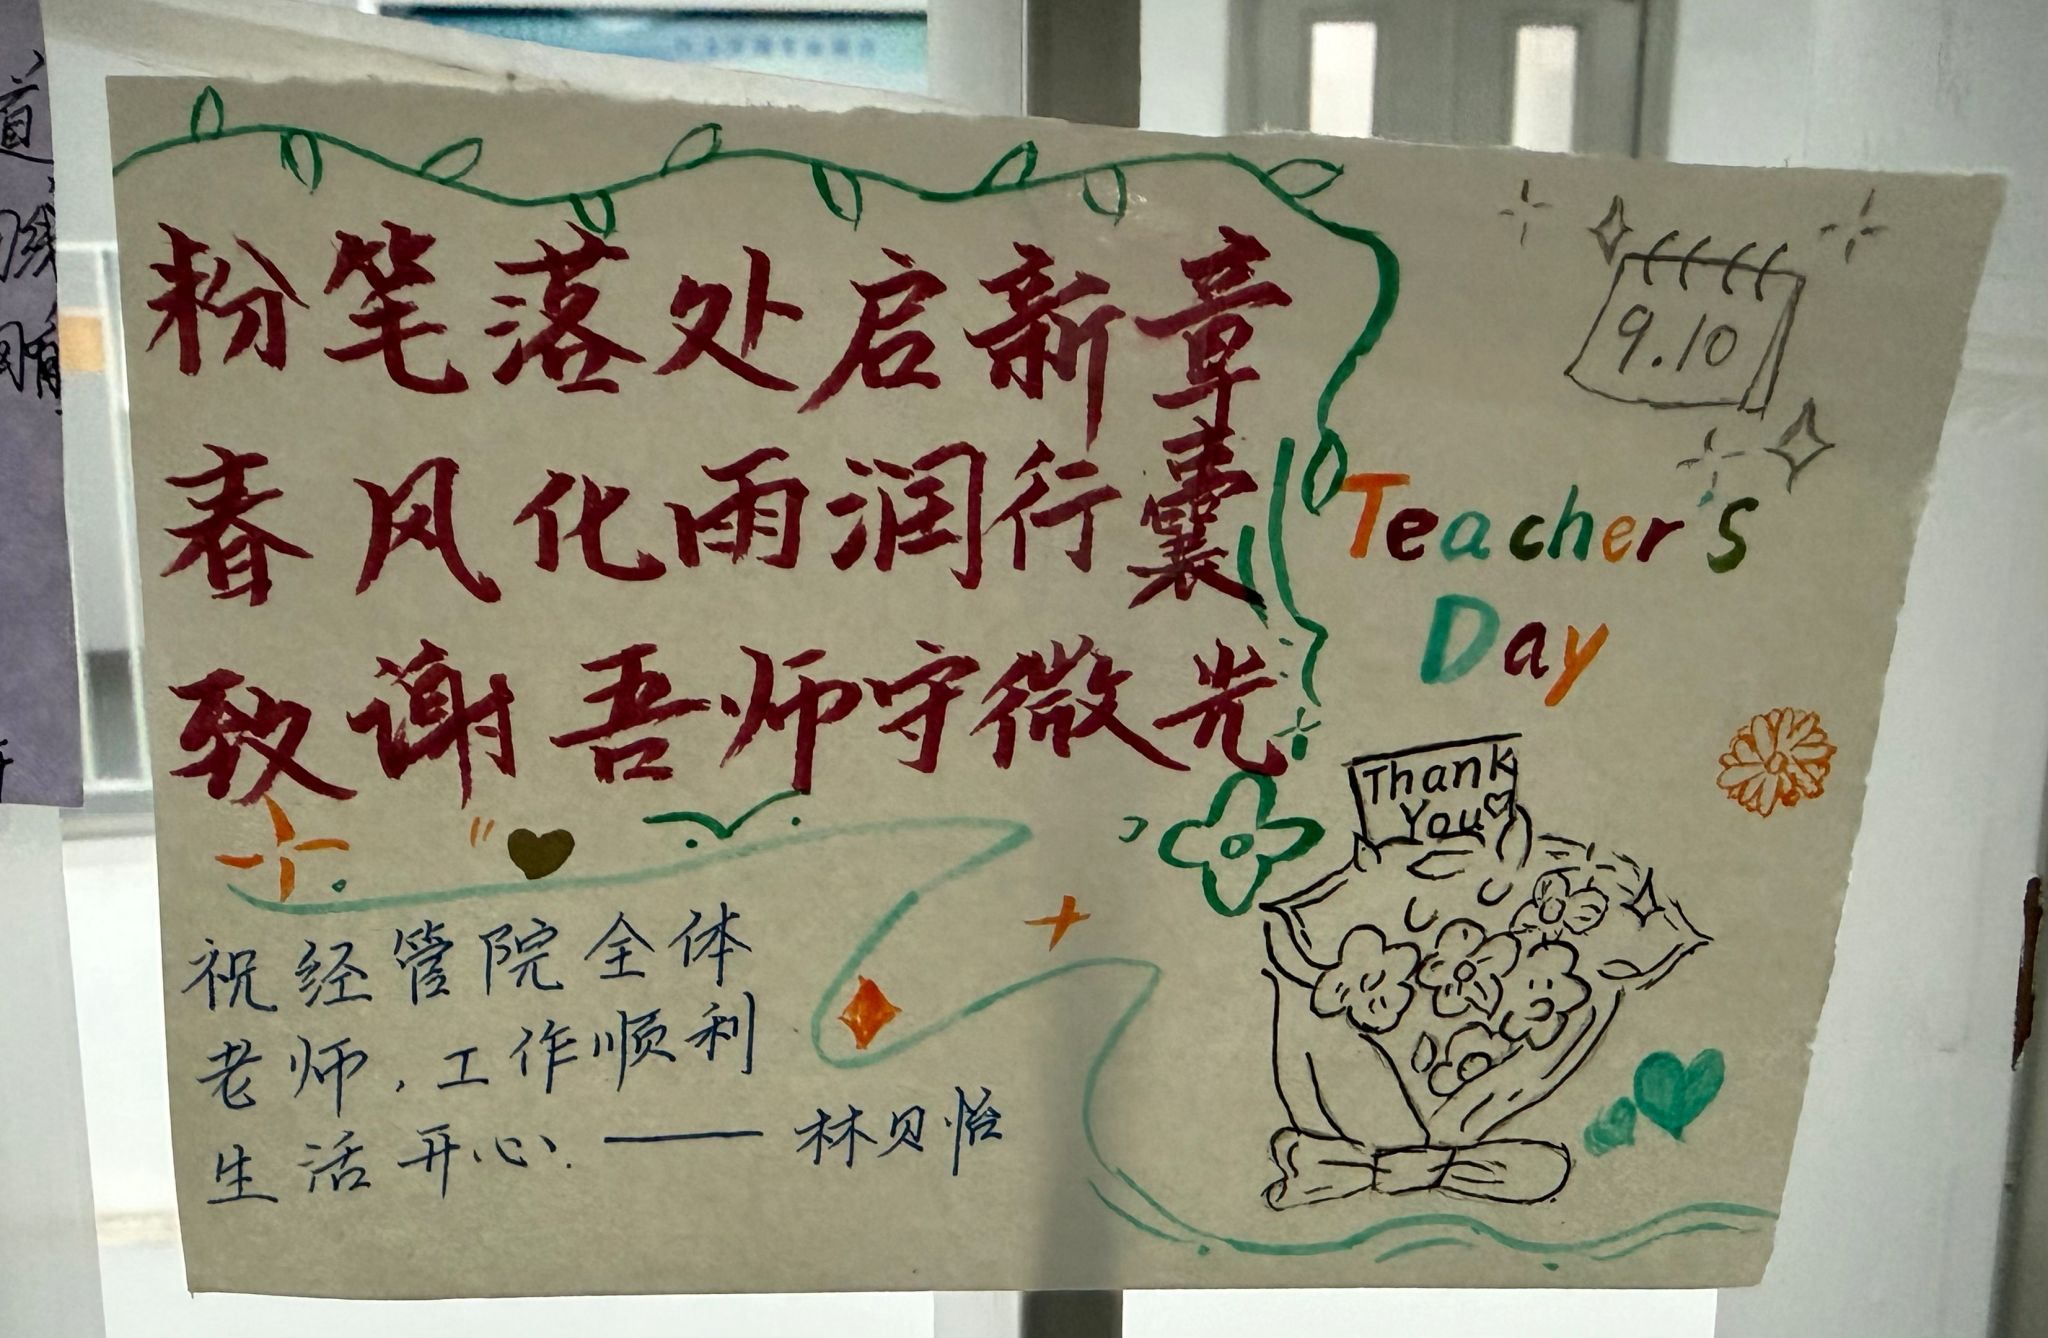 粉笔落处启新章
春风化雨润行囊
致谢吾师守微光
9.10
Teacher's
Day
Thank
You
祝经管院全体
老师，工作顺利
生活开心. —— 林贝怡